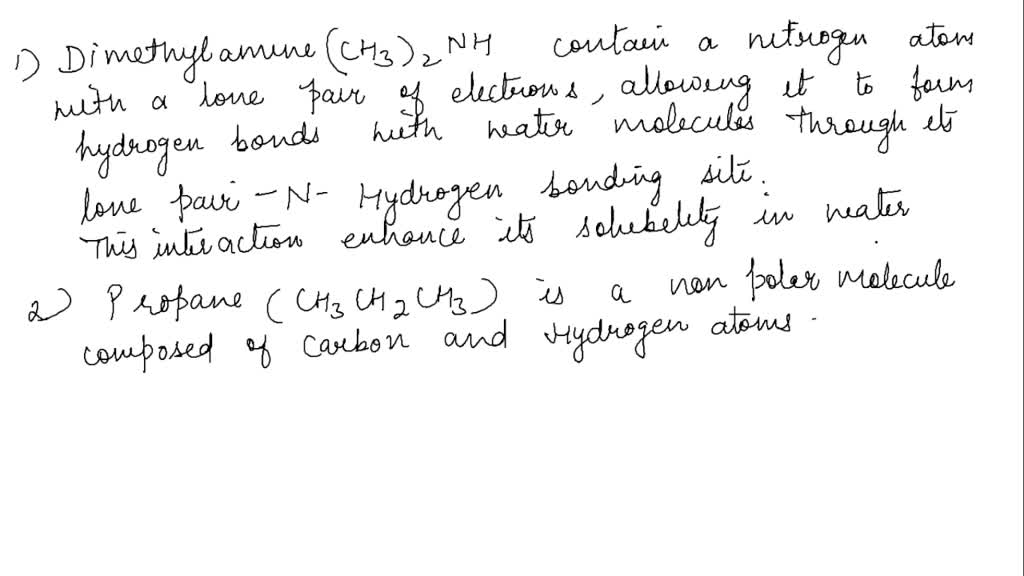 1) Dimethylamine (CH3)2 NH contain a nitrogen atom
with a lone pair of electrons, allowing it to form
hydrogen bonds with water molecules through its
lone pair - N- Hydrogen bonding site.
This interaction enhance its solubility in water
2) Propane (CH3CH2CH3) is a non polar molecule
composed of carbon and Hydrogen atoms.